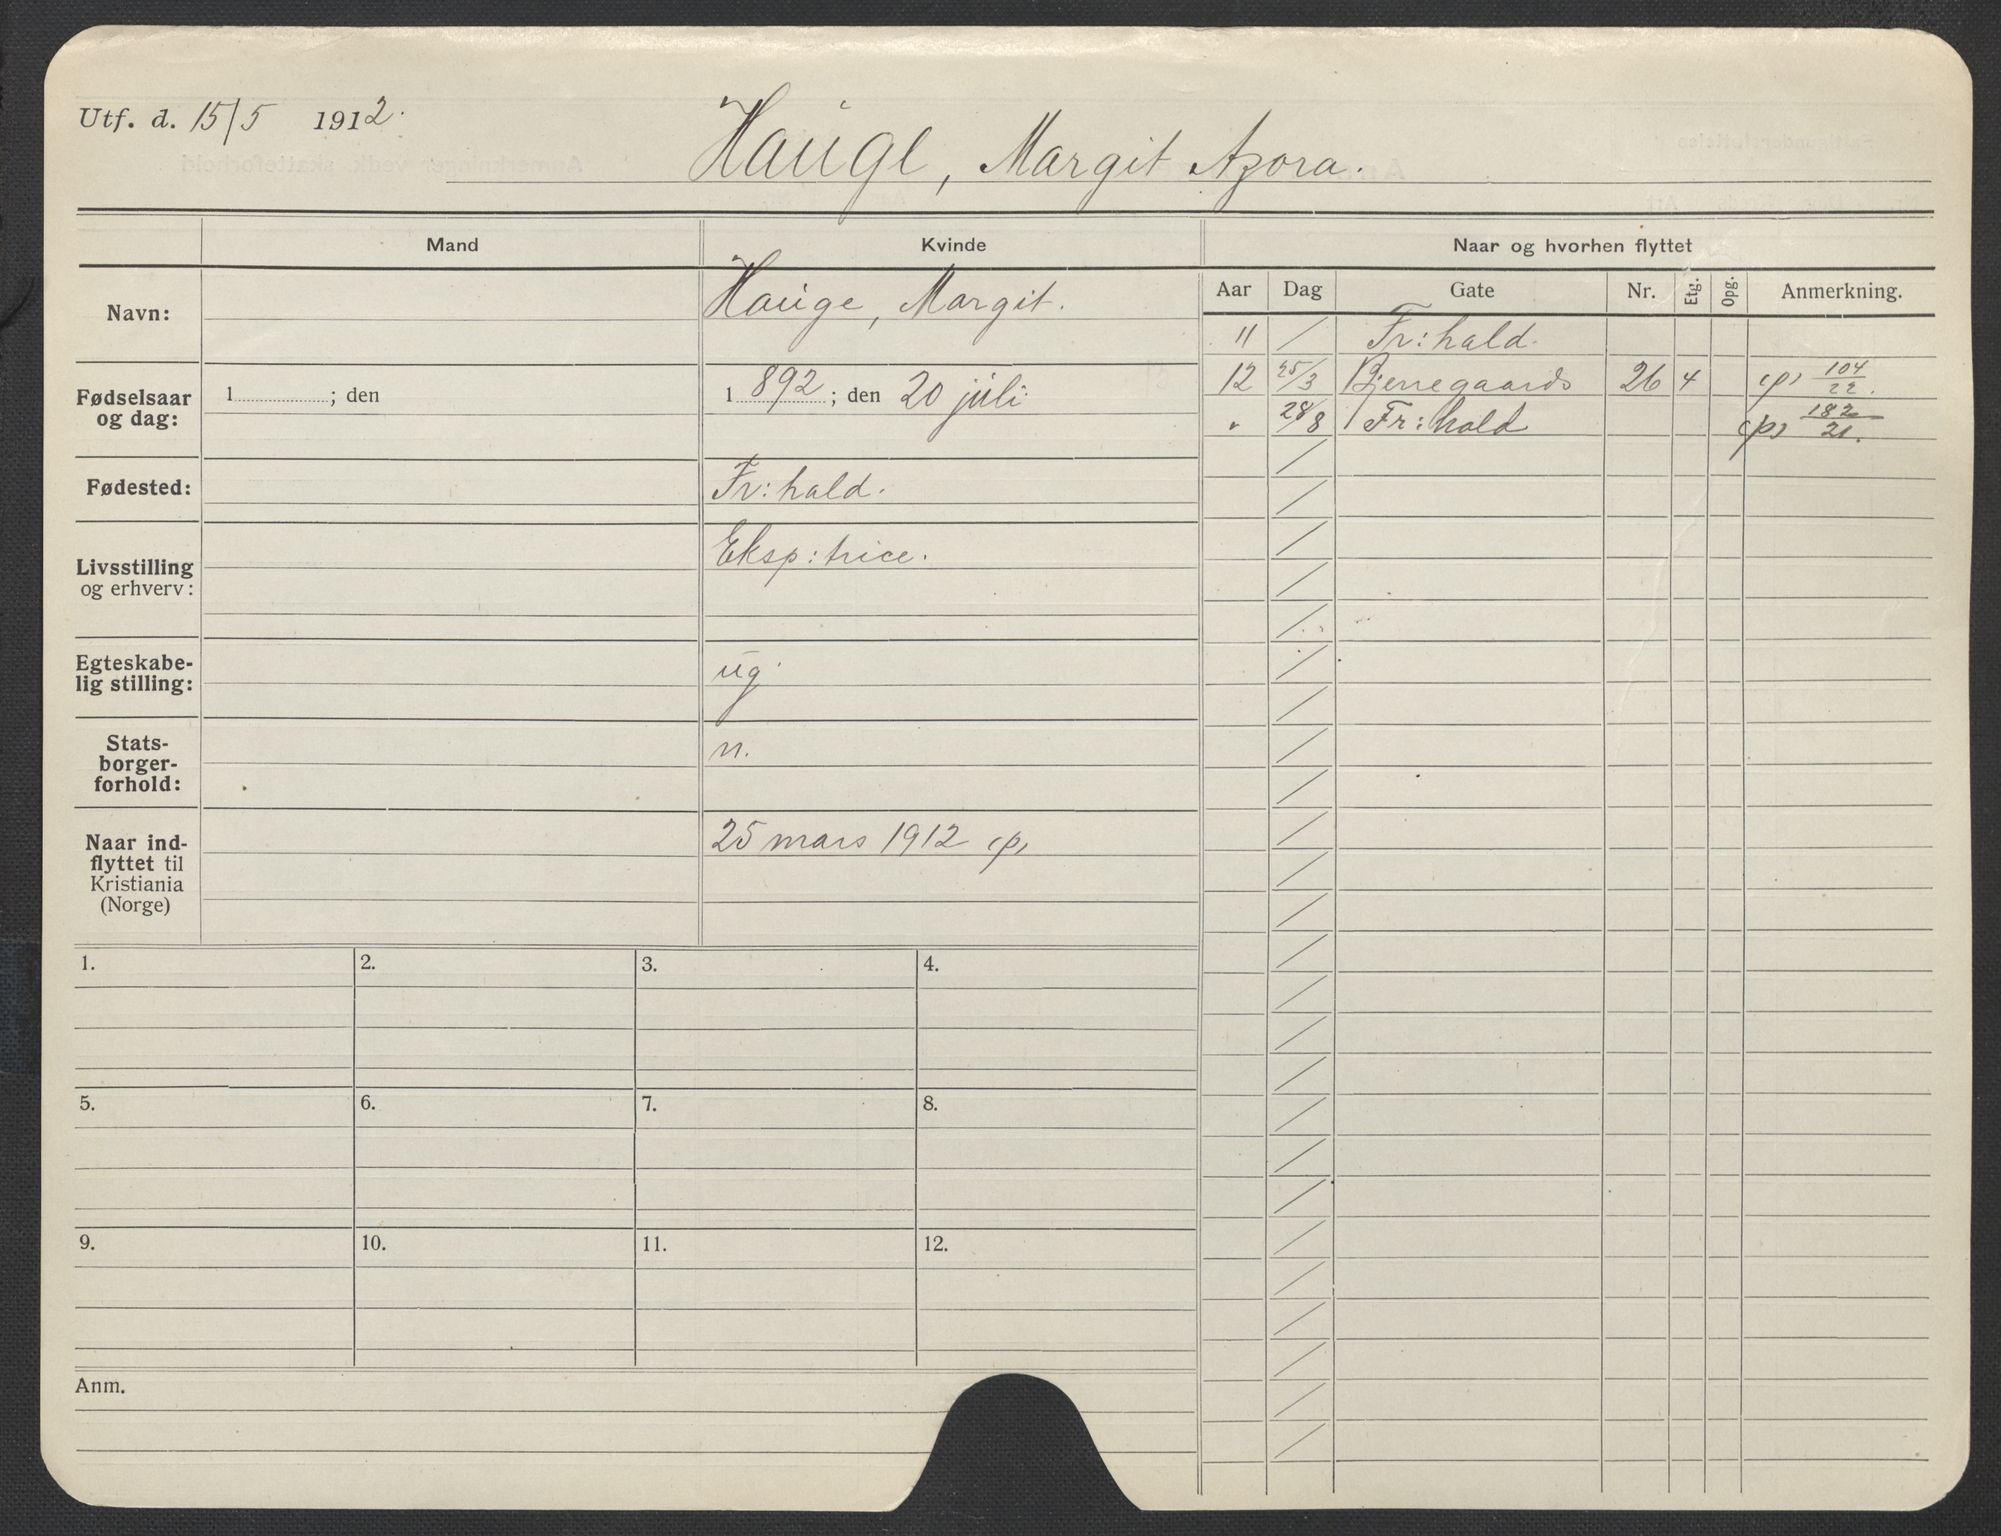 Utf. d. 15/5 1912.
Hauge, Margit Azora.
Mand
Kvinde
Naar og hvorhen flyttet
Navn:
Hauge, Margit.
Fødselsaar
og dag:
1 ; den
1 892 ; den 20 juli
Fødested:
Fr:hald.
Livsstilling
og erhverv:
Eksp:trice.
Egteskabe-
lig stilling:
ug
Stats-
borger-
forhold:
n.
Naar ind-
flyttet til
Kristiania
(Norge)
25 mars 1912 (p)
Aar Dag Gate Nr. Etg. Opg. Anmerkning.
11 / Fr:hald.
12 25/3 Bjerregaards 26 4 (p) 104/22.
" 28/8 Fr:hald (p) 182/21.
1. 2. 3. 4.
5. 6. 7. 8.
9. 10. 11. 12.
Anm.